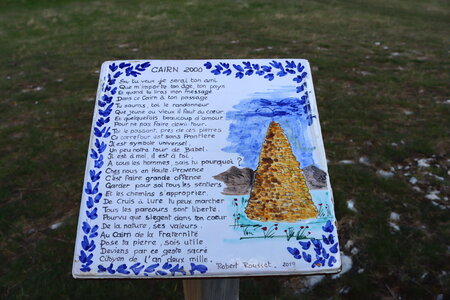 CAIRN 2000
Si tu veux je serai ton ami
Que m'importe ton âge, ton pays
Et quand tu liras mon message
Dans ce Cairn à ton passage
Tu sauras, toi le randonneur
Que jeune ou vieux il faut du cœur
Et quelquefois beaucoup d'amour
Pour ne pas faire demi-tour.
Toi le passant, près de ces pierres
Ce carrefour est sans frontière
Il est symbole universel
Un peu notre tour de Babel.
Il est à moi, il est à toi.
A tous les hommes, sais tu pourquoi ?
Chez nous en Haute-Provence
C'est faire grande offence
Garder pour soi tous les sentiers
Et les chemins s'approprier.
De Cruis à Lure tu peux marcher
Tous les parcours sont liberté.
Pourvu que siègent dans ton cœur
De la nature, ses valeurs.
Au Cairn de la Fraternité
Pose ta pierre, sois utile
Deviens par ce geste sacré
Citoyen de l'an deux mille.
Robert Rousset.